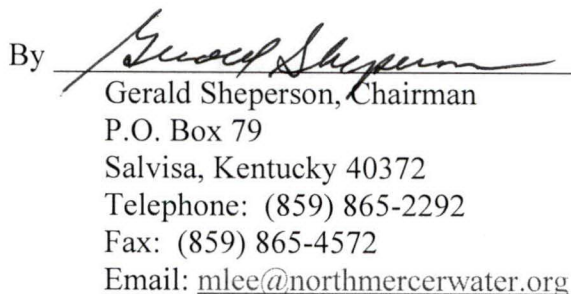 By Gerald Sheperson
Gerald Sheperson, Chairman
P.O. Box 79
Salvisa, Kentucky 40372
Telephone: (859) 865-2292
Fax: (859) 865-4572
Email: mlee@northmercerwater.org